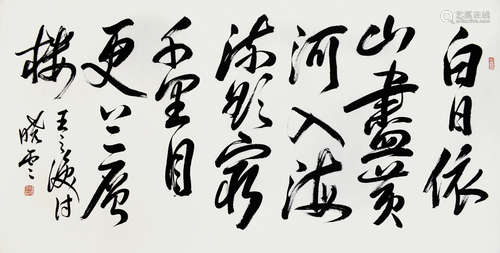 白日依
山盡黄
河入海
流欲窮
千里目
更上一層
樓
王之涣诗
晓云